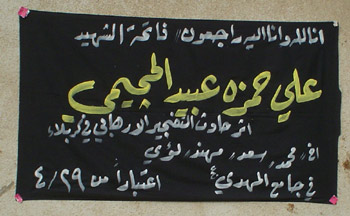 انا لله وانا اليه راجعون // فاتحة الشهيد
علي حمزه عبيد الجحيمي
اثر حادث التفجير الارهابي في كربلاء
اخ/ محمد, سعد, مهند, لؤي
في جامع المهدي ع اعتباراً من ٤/٢٩